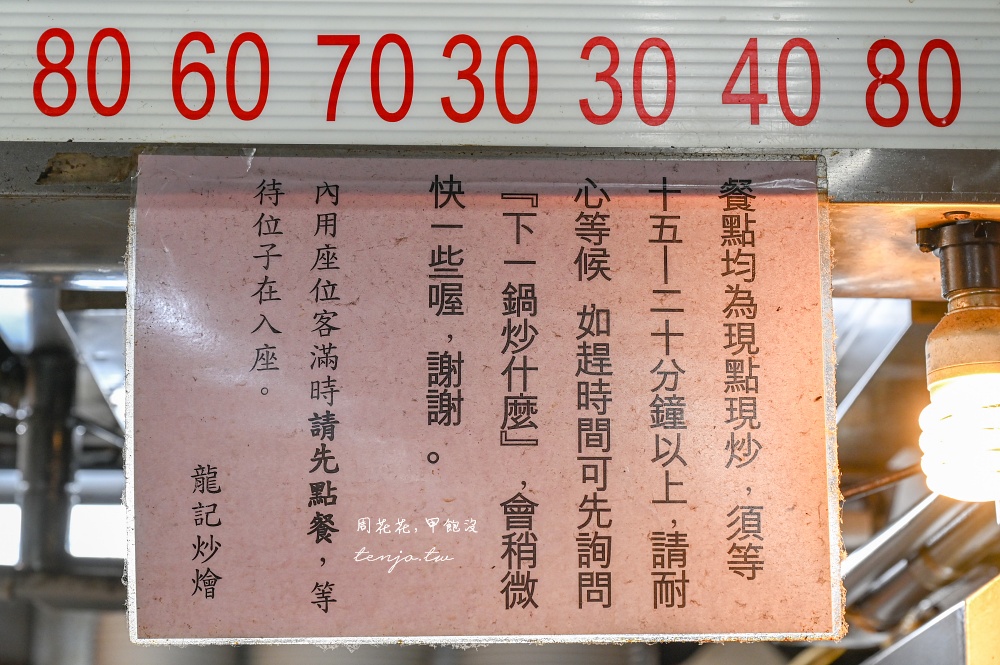 80 60 70 30 30 40 80
餐點均為現點現炒，須等
十五—二十分鐘以上，請耐
心等候 如趕時間可先詢問
『下一鍋炒什麼』，會稍微
快一些喔，謝謝。
內用座位客滿時請先點餐，等
待位子在入座。
龍記炒燴
周花花，甲飽沒
tenjo.tw